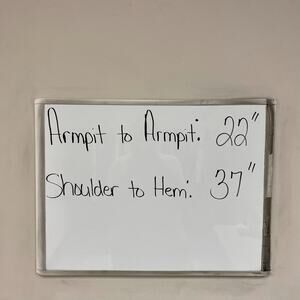 Armpit to Armpit: 22"
Shoulder to Hem: 37"